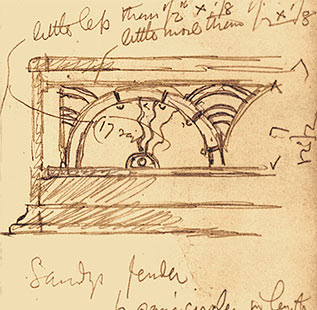 little less than 1/2" x 1/8
little more than 1/2 x 1/8
17 rays
Sandys fender
semicircles in length